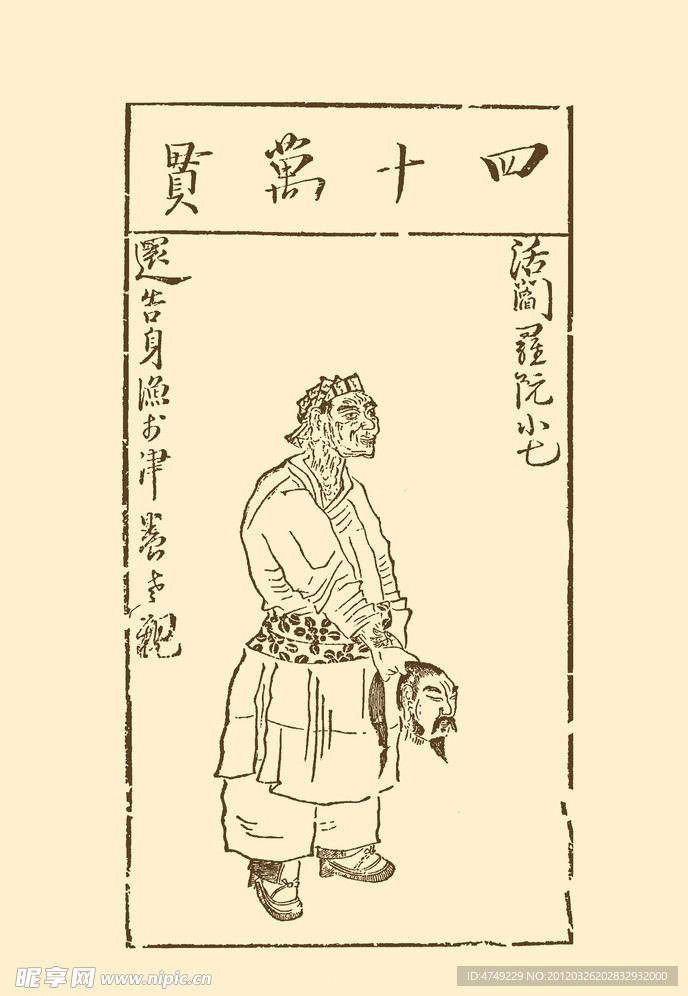 四十萬貫
活閻羅阮小七
還告身漁於津養老親
昵享网 www.nipic.cn
ID:4749229 NO:20120326202832932000